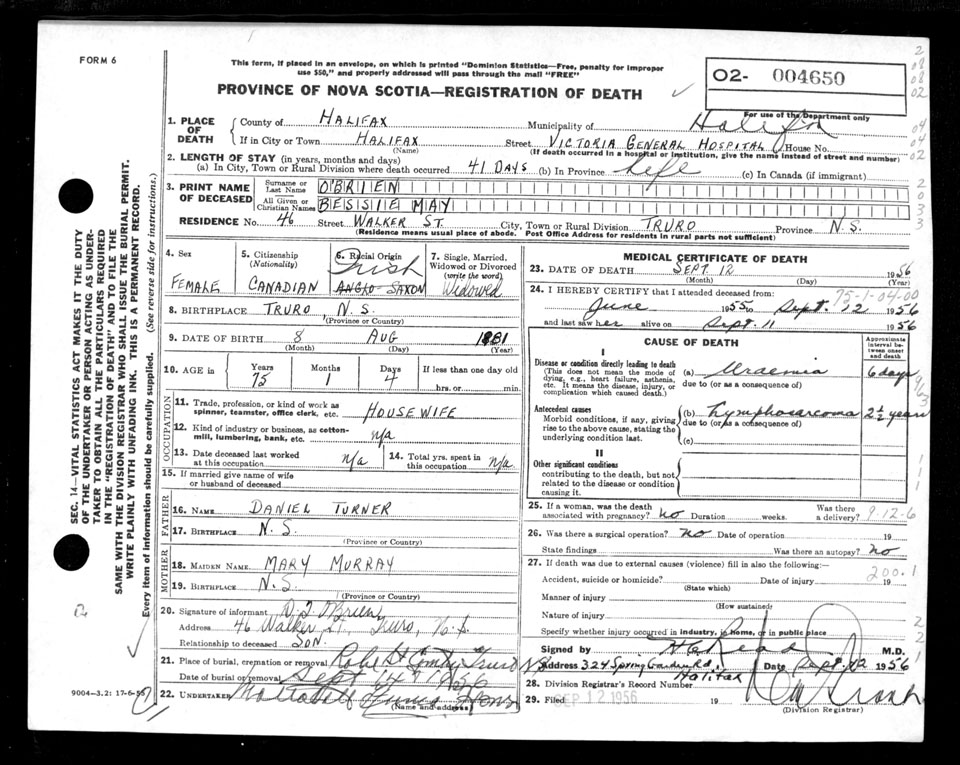 FORM 6
This form, if placed in an envelope, on which is printed "Dominion Statistics—Free, penalty for improper
use $50," and properly addressed will pass through the mail "FREE"
PROVINCE OF NOVA SCOTIA—REGISTRATION OF DEATH
O2- 004650
For use of the Department only
1. PLACE OF DEATH
County of HALIFAX Municipality of Halifax
If in City or Town HALIFAX Street VICTORIA GENERAL HOSPITAL House No.
(Name) (If death occurred in a hospital or institution, give the name instead of street and number)
2. LENGTH OF STAY (in years, months and days)
(a) In City, Town or Rural Division where death occurred 41 DAYS (b) In Province Life (c) In Canada (if immigrant)
3. PRINT NAME OF DECEASED
Surname or Last Name O'BRIEN
All Given or Christian Names BESSIE MAY
RESIDENCE No. 46 Street WALKER ST. City, Town or Rural Division TRURO Province N.S.
(Residence means usual place of abode. Post Office Address for residents in rural parts not sufficient)
4. Sex FEMALE
5. Citizenship (Nationality) CANADIAN
6. Racial Origin Irish ANGLO-SAXON
7. Single, Married, Widowed or Divorced (write the word) Widowed
8. BIRTHPLACE TRURO N.S.
(Province or Country)
9. DATE OF BIRTH 8 AUG 1881
(Month) (Day) (Year)
10. AGE in Years 75 Months 1 Days 4 If less than one day old
hrs. or min.
OCCUPATION
11. Trade, profession, or kind of work as
spinner, teamster, office clerk, etc. HOUSEWIFE
12. Kind of industry or business, as cotton-
mill, lumbering, bank, etc. n/a
13. Date deceased last worked
at this occupation n/a
14. Total yrs. spent in
this occupation n/a
15. If married give name of wife
or husband of deceased
FATHER
16. Name DANIEL TURNER
17. Birthplace N.S.
(Province or Country)
MOTHER
18. Maiden Name MARY MURRAY
19. Birthplace N.S.
(Province or Country)
20. Signature of informant O'Brien
Address 46 Walker St., Truro, N.S.
Relationship to deceased SON.
21. Place of burial, cremation or removal Robie St Truro NS
Date of burial or removal Sept 14th 1956
22. Undertaker Sons
(Name and address)
MEDICAL CERTIFICATE OF DEATH
23. DATE OF DEATH SEPT 12 1956
(Month) (Day) (Year)
75-1-04-00
24. I HEREBY CERTIFY that I attended deceased from:
June 1955 to Sept. 12 1956
and last saw her alive on Sept. 11 1956
CAUSE OF DEATH
Approximate interval between onset and death
I
Disease or condition directly leading to death
(This does not mean the mode of
dying, e.g., heart failure, asthenia,
etc. It means the disease, injury, or
complication which caused death.)
(a) Uraemia 6 days
due to (or as a consequence of)
Antecedent causes
Morbid conditions, if any, giving
rise to the above cause, stating the
underlying condition last.
(b) Lymphosarcoma 2½ years
due to (or as a consequence of)
(c)
II
Other significant conditions
contributing to the death, but not
related to the disease or condition
causing it.
25. If a woman, was the death
associated with pregnancy? no Duration weeks. Was there
a delivery? 9-12-6
26. Was there a surgical operation? no Date of operation 19
State findings Was there an autopsy? no
27. If death was due to external causes (violence) fill in also the following:—
200.1
Accident, suicide or homicide? Date of injury 19
(State which)
Manner of injury
(How sustained)
Nature of injury
Specify whether injury occurred in industry, in home, or in public place
Signed by H C Read M.D.
Address 324 Spring Garden Rd., Halifax Date Sept. 12 1956
28. Division Registrar's Record Number
29. Filed SEP 12 1956 19
(Division Registrar)
SEC. 14—VITAL STATISTICS ACT MAKES IT THE DUTY
OF THE UNDERTAKER OR PERSON ACTING AS UNDER-
TAKER TO OBTAIN ALL THE PARTICULARS REQUIRED
IN THE "REGISTRATION OF DEATH" AND TO FILE THE
SAME WITH THE DIVISION REGISTRAR WHO SHALL ISSUE THE BURIAL PERMIT.
WRITE PLAINLY WITH UNFADING INK. THIS IS A PERMANENT RECORD.
Every item of information should be carefully supplied. (See reverse side for instructions.)
9004—3.2: 17-6-55